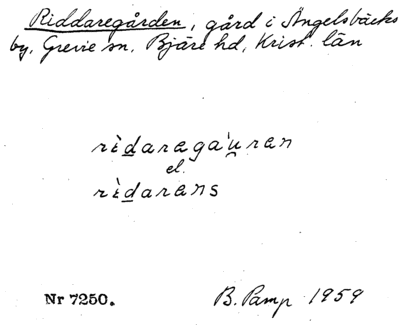 Riddaregården, gård i Ängelsbäcks
by, Grevie sn, Bjäre hd, Krist. län
rìdaraga'u̯ran
el.
rìdarans
Nr 7250.
B. Pamp 1959